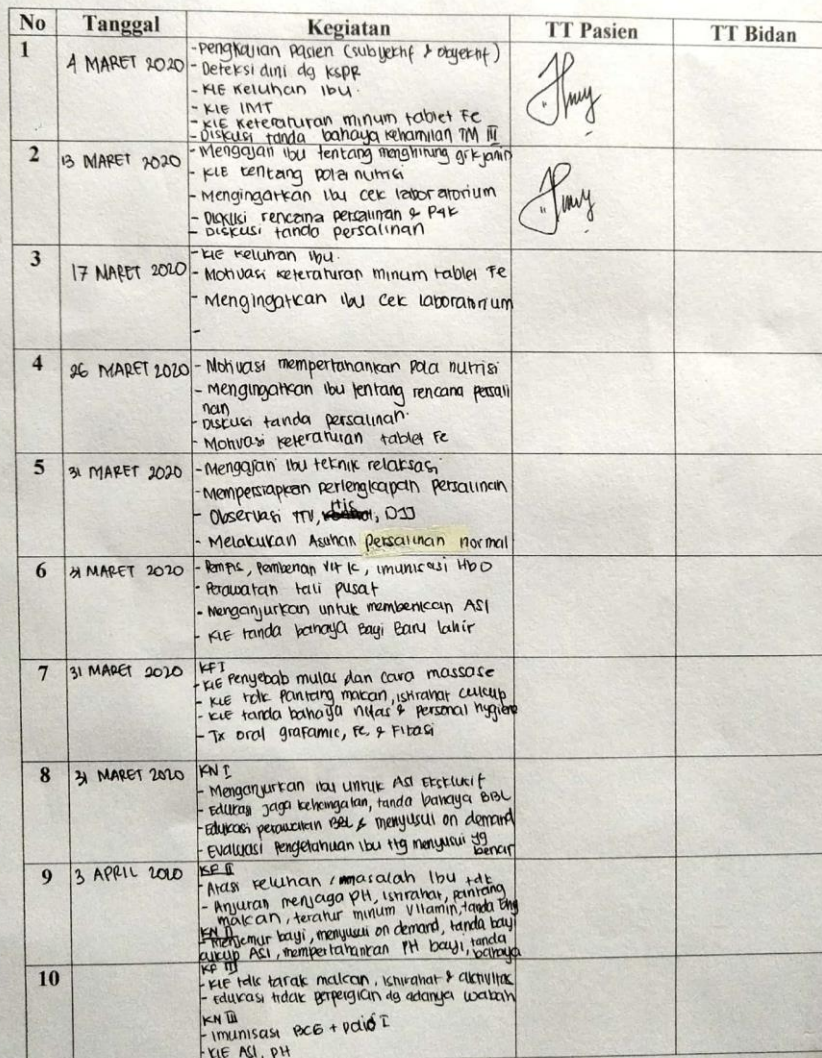 No Tanggal Kegiatan TT Pasien TT Bidan
1
4 MARET 2020
- Pengkajian pasien (subyektif & obyektif)
- Deteksi dini dg KSPR
- KIE Keluhan Ibu.
- KIE IMT
- KIE Keteraturan minum tablet Fe
- Diskusi tanda bahaya kehamilan TM III
2
13 MARET 2020
- Mengajari ibu tentang menghitung grk janin
- KIE tentang pola nutrisi
- Mengingatkan Ibu cek laboratorium
- Diskusi rencana persalinan & P4K
- Diskusi tanda persalinan
3
17 MARET 2020
- KIE Keluhan Ibu.
- Motivasi keteraturan minum tablet Fe
- Mengingatkan ibu cek laboratorium
-
4
26 MARET 2020
- Motivasi mempertahankan pola nutrisi
- Mengingatkan ibu tentang rencana persali
nan
- Diskusi tanda persalinan.
- Motivasi keteraturan tablet Fe
5
31 MARET 2020
- Mengajari ibu teknik relaksasi
- Mempersiapkan perlengkapan persalinan
- Observasi TTV, His, DJJ
- Melakukan Asuhan persalinan normal
6
31 MARET 2020
- Pemberian Vit K, imunisasi HbO
- Perawatan tali pusat
- Menganjurkan untuk memberikan ASI
- KIE tanda bahaya Bayi Baru lahir
7
31 MARET 2020
KF I
- KIE Penyebab mulas dan cara massase
- KIE tdk pantang makan, istirahat cukup
- KIE tanda bahaya nifas & personal hygiene
- Tx oral grafamic, Fe, & Fitasi
8
31 MARET 2020
KN I
- Menganjurkan ibu untuk ASI Eksklusif
- Edukasi jaga kehangatan, tanda bahaya BBL
- Edukasi perawatan BBL & menyusui on demand
- Evaluasi Pengetahuan ibu ttg menyusui yg
benar
9
3 APRIL 2020
KF II
- Atasi keluhan / masalah Ibu tdk
- Anjuran menjaga PH, istirahat, pantang
makan, teratur minum vitamin, tanda
KN II
- Menjemur bayi, menyusui on demand, tanda bayi
cukup ASI, mempertahankan PH bayi, tanda
bahaya
10
KF III
- KIE tdk tarak makan, istirahat & aktivitas
- Edukasi tidak berpergian dg adanya wabah
KN III
- Imunisasi BCG + Polio I
- KIE ASI, PH